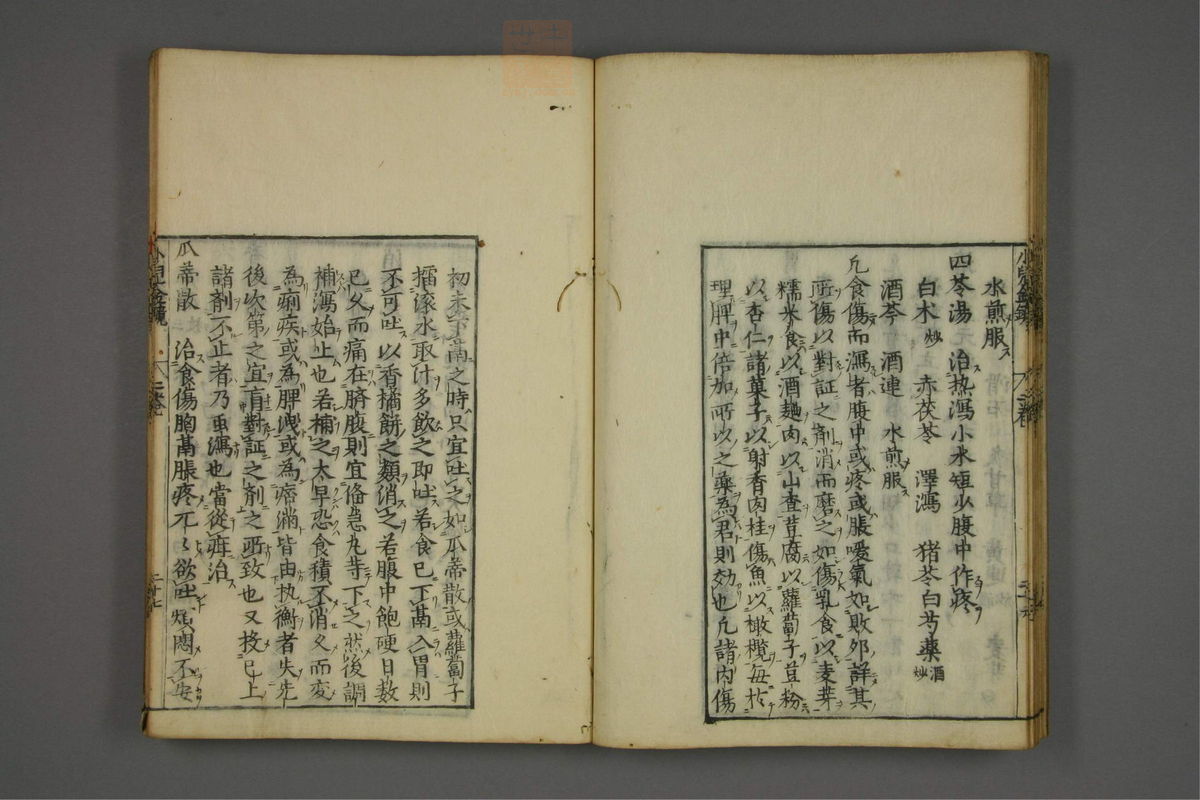 水煎服
四苓湯 治热瀉小水短少腹中作疼
白朮炒 赤茯苓 澤瀉 猪苓白芍藥酒炒
酒芩 酒連 水煎服
凢食傷而瀉者腹中或疼或脹噯氣如敗卵詳其
所傷以對証之剤消而磨之如傷乳食以麦芽
糯米食以酒麯肉以山查荳腐以蘿蔔子荳粉
以杏仁諸菓子以射香肉桂傷魚以橄欖毎於
理脾中倍加所以之藥為君則効也凢諸肉傷
初未下鬲之時只宜吐之如瓜蒂散或蘿蔔子
擂滚水取汁多飲之即吐若食已下鬲入胃則
不可吐以香橘餅之類消之若腹中飽硬日数
已久而痛在臍腹則宜俻急丸寺下之然後調
補瀉始止也若補之太早恐食積不消久而変
為痢疾或為脾洩或為痞滿皆由执衡者失先
後次第之宜有對証之剤之所致也又按已上
諸剤不止者乃虫瀉也當從疳治
瓜蒂散 治食傷胸鬲脹疼兀々欲吐煩悶不安